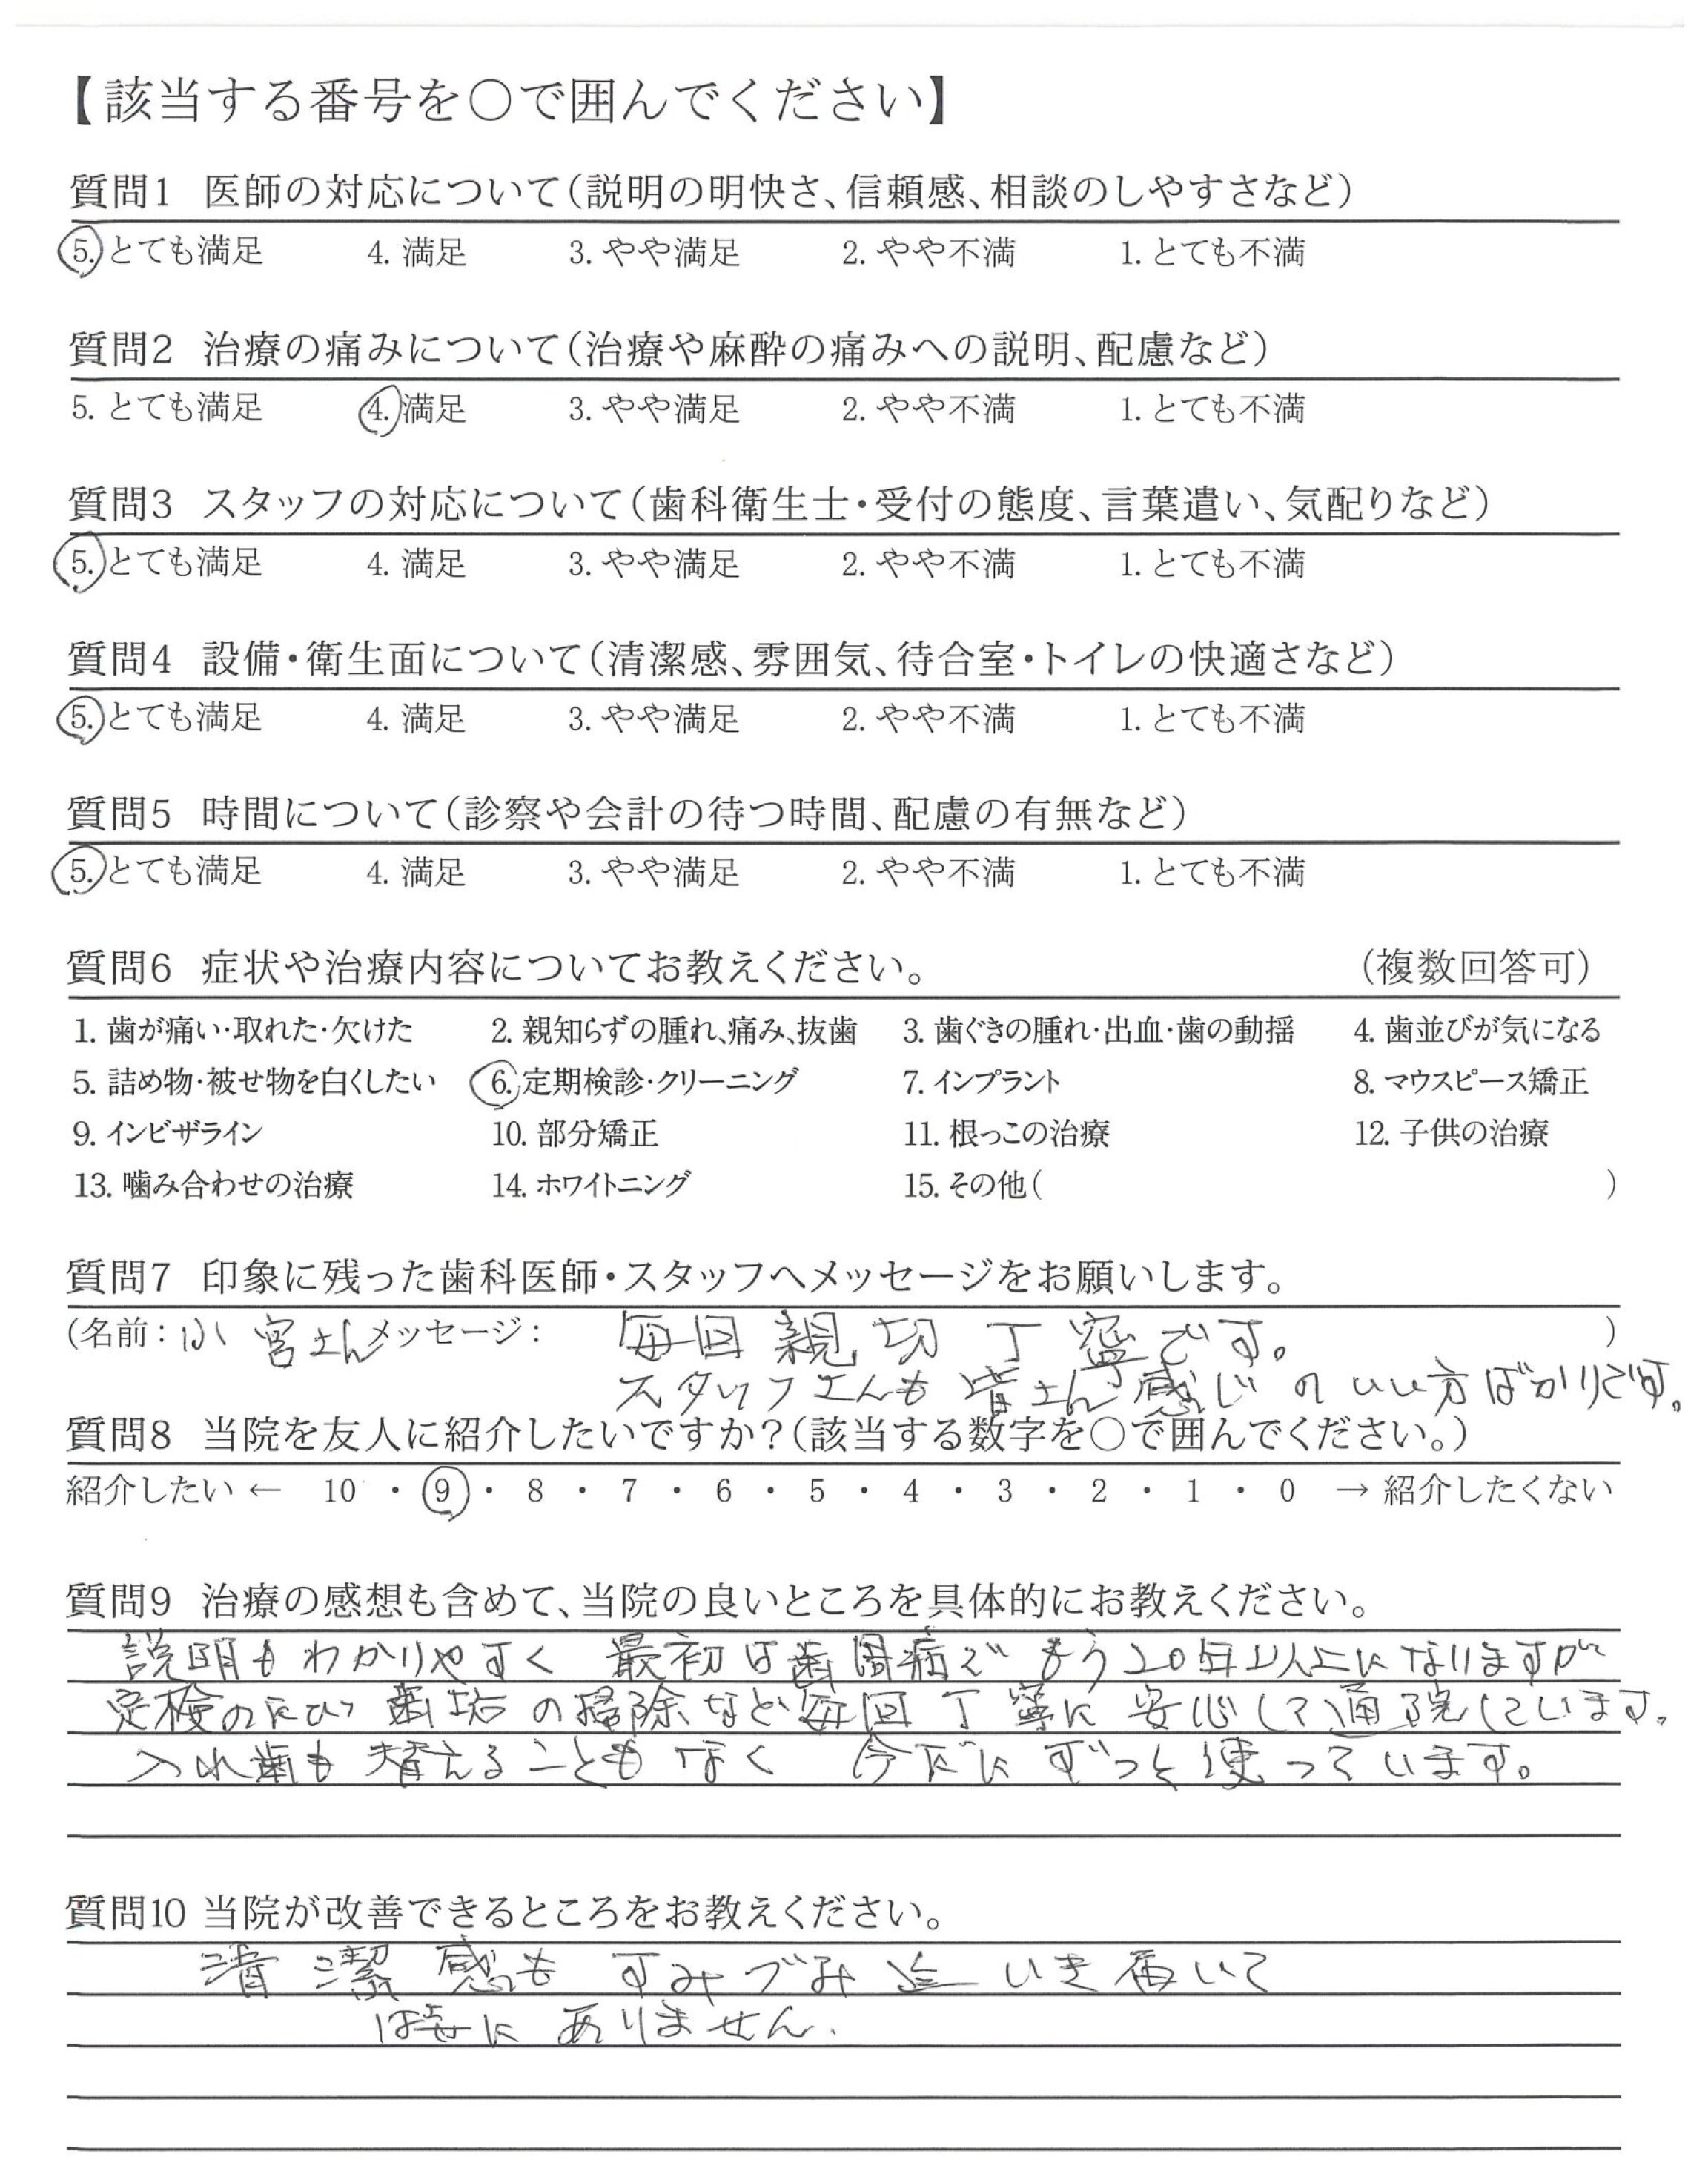 【該当する番号を〇で囲んでください】
質問1 医師の対応について(説明の明快さ、信頼感、相談のしやすさなど)
5. とても満足 4. 満足 3. やや満足 2. やや不満 1. とても不満
質問2 治療の痛みについて(治療や麻酔の痛みへの説明、配慮など)
5. とても満足 4. 満足 3. やや満足 2. やや不満 1. とても不満
質問3 スタッフの対応について(歯科衛生士・受付の態度、言葉遣い、気配りなど)
5. とても満足 4. 満足 3. やや満足 2. やや不満 1. とても不満
質問4 設備・衛生面について(清潔感、雰囲気、待合室・トイレの快適さなど)
5. とても満足 4. 満足 3. やや満足 2. やや不満 1. とても不満
質問5 時間について(診察や会計の待つ時間、配慮の有無など)
5. とても満足 4. 満足 3. やや満足 2. やや不満 1. とても不満
質問6 症状や治療内容についてお教えください。 (複数回答可)
1. 歯が痛い・取れた・欠けた 2. 親知らずの腫れ、痛み、抜歯 3. 歯ぐきの腫れ・出血・歯の動揺 4. 歯並びが気になる
5. 詰め物・被せ物を白くしたい 6. 定期検診・クリーニング 7. インプラント 8. マウスピース矯正
9. インビザライン 10. 部分矯正 11. 根っこの治療 12. 子供の治療
13. 噛み合わせの治療 14. ホワイトニング 15. その他( )
質問7 印象に残った歯科医師・スタッフへメッセージをお願いします。
(名前:小宮さん メッセージ: 毎回親切丁寧です。 )
スタッフさんも皆さん感じのいい方ばかりです。
質問8 当院を友人に紹介したいですか?(該当する数字を〇で囲んでください。)
紹介したい ← 10 ・ 9 ・ 8 ・ 7 ・ 6 ・ 5 ・ 4 ・ 3 ・ 2 ・ 1 ・ 0 → 紹介したくない
質問9 治療の感想も含めて、当院の良いところを具体的にお教えください。
説明もわかりやすく 最初は歯周病で もう20年以上になりますが
定検のたび 歯垢の掃除など毎回丁寧に 安心して通院しています。
入れ歯も替えることもなく 今だに ずっと使っています。
質問10 当院が改善できるところをお教えください。
清潔感も すみづみ迄 いき届いて
特に ありません.